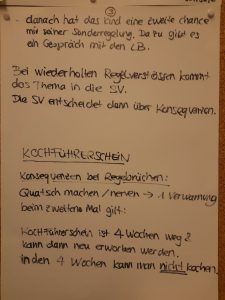 ③
- danach hat das Kind eine zweite Chance
mit seiner Sonderregelung. Dazu gibt es
ein Gespräch mit den LB.
Bei wiederholten Regelverstössen kommt
das Thema in die SV.
Die SV entscheidet dann über Konsequenzen.
KOCHFÜHRERSCHEIN
Konsequenzen bei Regelbrüchen:
Quatsch machen / nerven → 1 Verwarnung
beim zweiten Mal gilt:
Kochführerschein ist 4 Wochen weg &
kann dann neu erworben werden.
in den 4 Wochen kann man nicht kochen.